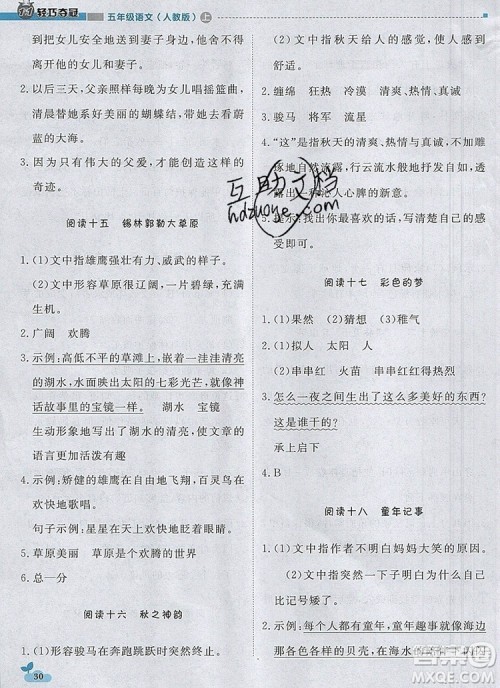 轻巧夺冠
五年级语文(人教版) 上
到把女儿安全地送到妻子身边,他才离
开他的女儿和妻子。
2. 以后三天,父亲每天为女儿唱摇篮曲,
清晨替她系好美丽的蝴蝶结,看蔚蓝
的大海。
3. 因为只有伟大的父爱,才能创造这样的
奇迹。
阅读十五 锡林郭勒大草原
1. (1)文中指雄鹰强壮有力、威武的样子。
(2)文中形容草原很辽阔,一片碧绿,充满
生机。
2. 广阔 欢腾
3. 示例:高低不平的草滩上,嵌着一洼洼清亮
的湖水,水面映出太阳的七彩光芒,就像神
话故事里的宝镜一样。 湖水 宝镜
生动形象地写出了湖水的清亮,使文章的
语言更加活泼
4. 示例:矫健的雄鹰在自由地飞翔,百灵鸟在
欢快地歌唱。
句子示例:小鸟在天空上欢快地飞来飞去。
5. 草原美丽 草原是个欢腾的世界
6. 总—分
阅读十六 秋之神韵
1. (1)形容骏马在奔跑跳跃时突然尥起
30
2. 缠绵 狂热 冷漠 清爽、热情、真诚
3. 骏马 将军 流星
4. “这”是指秋天的清爽、热情与真诚,不加雕
琢地自然流露,行云流水般地抒发自己的情
透出一种沁人心脾的新意。
5. 提示:找出你最喜欢的话,写出自己的感
受即可。
阅读十七 彩色的梦
1. (1)果然 (2)猜想 (3)稚气
2. (1)拟人 太阳 人
(2)串串红 火苗 串串红
3. 怎么一夜之间生出了这么多美好的东西?
这是谁干的?
承上启下
4. B
阅读十八 童年记事
1. (1)文中指作者不明白妈妈大笑的原因。
(2)文中指突然一下子想不起来了,文中
比记号矮了。
2. 示例:童年就像大海,童年趣事就像海边
那各种各样的贝壳。
互助文档
hdzuoye.com